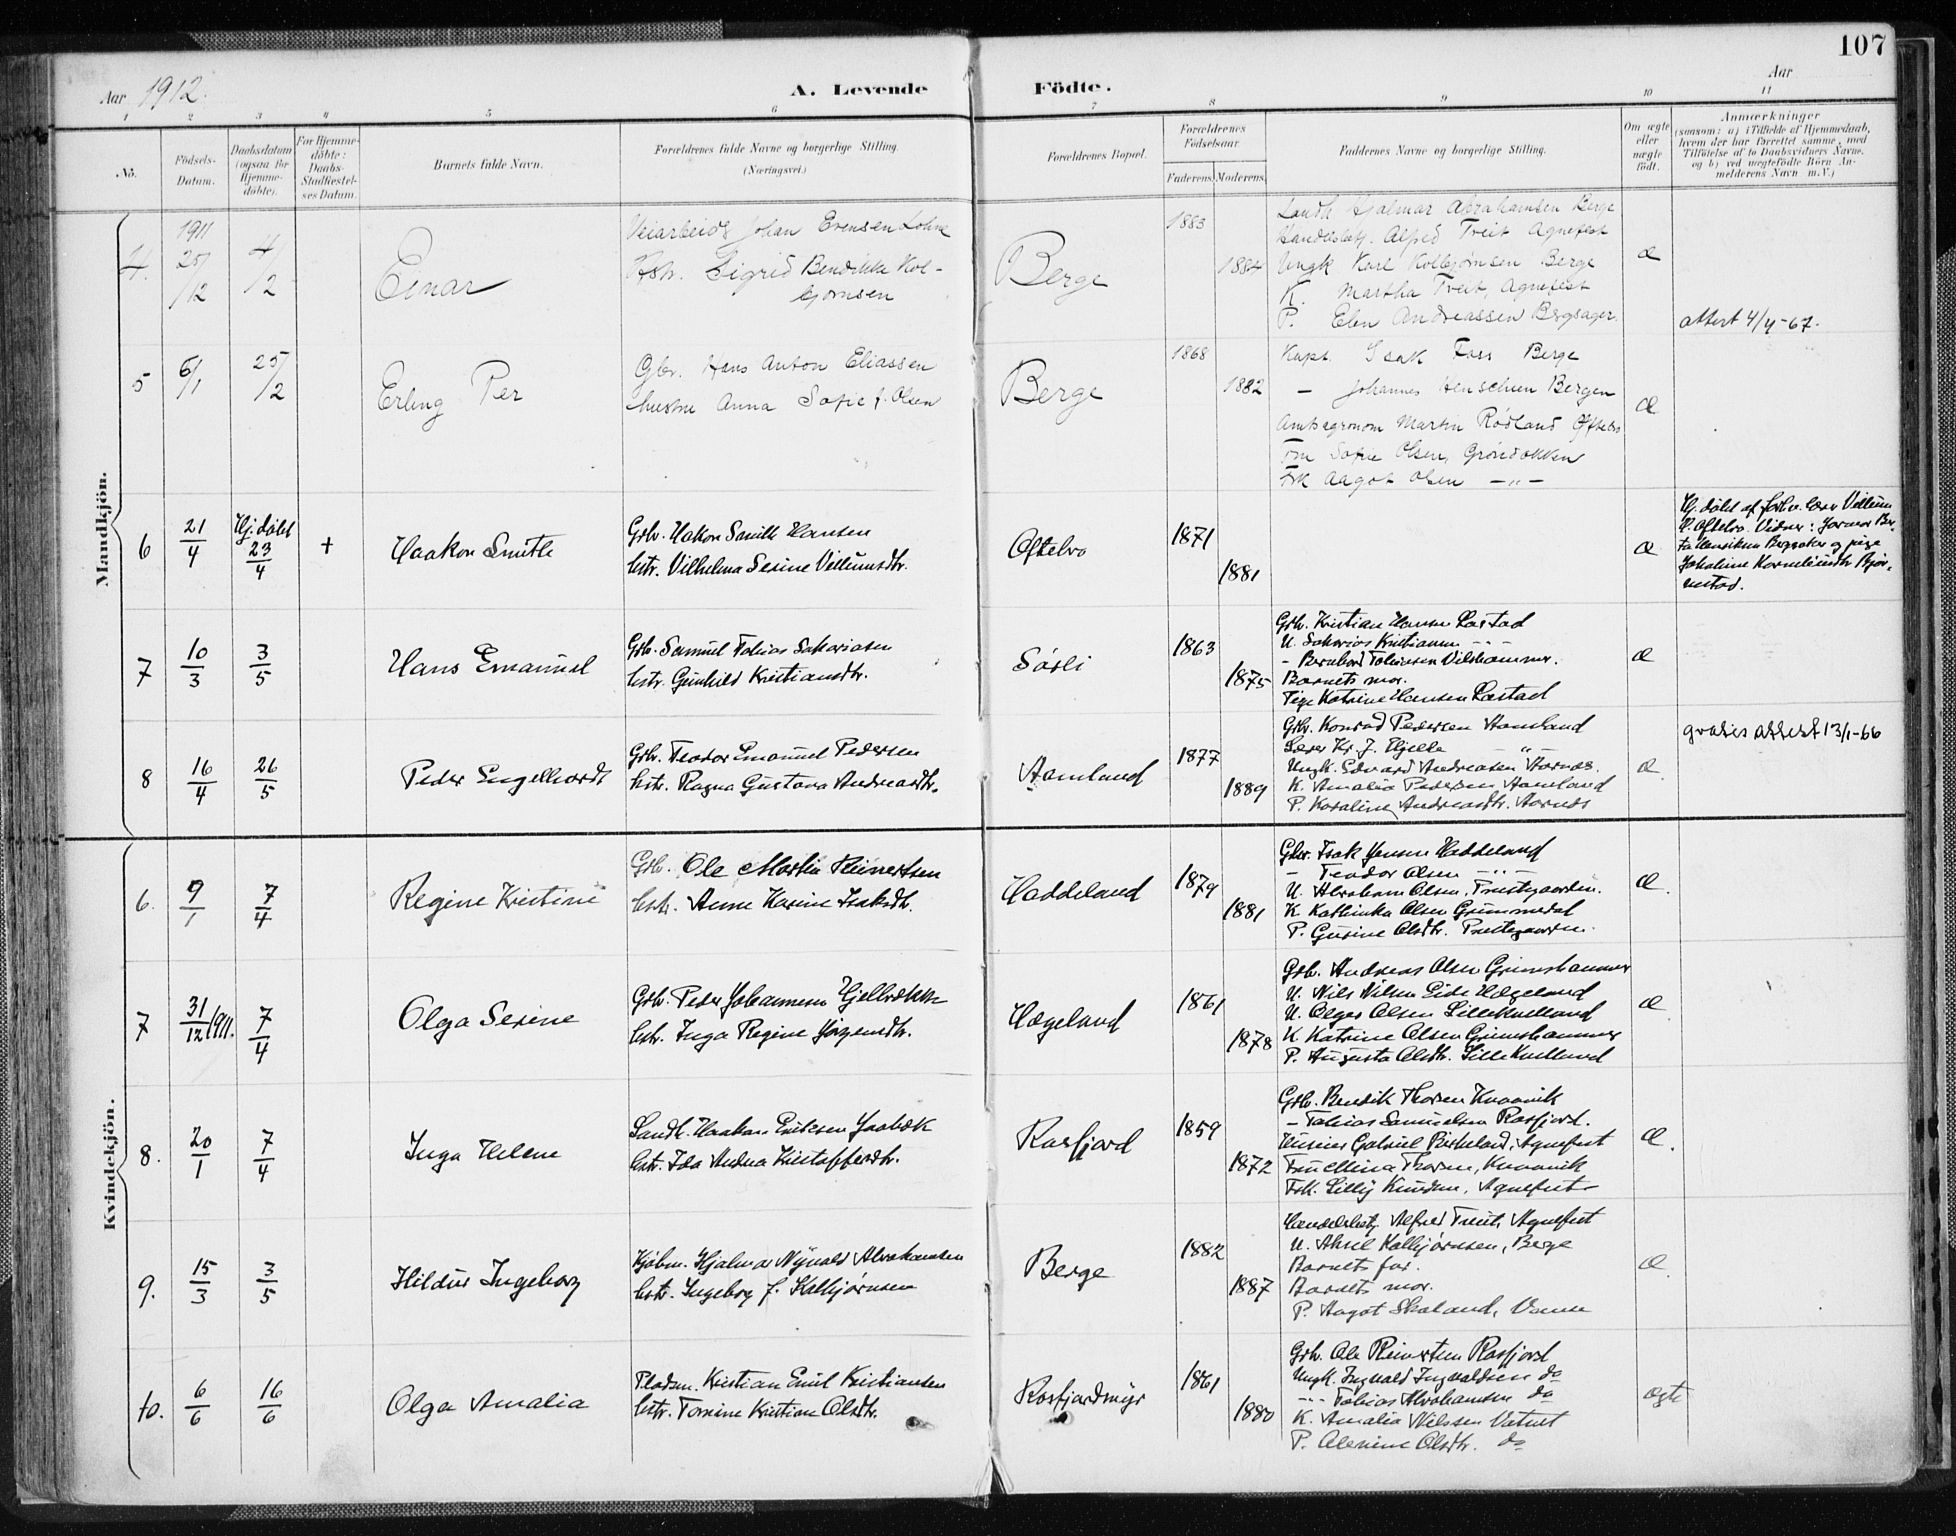 107
Aar 1912.
A. Levende Födte.
Aar
1 2 3 4 5 6 7 8 9 10 11
No.
Födsels-Datum.
Daabsdatum (ogsaa for Hjemme-döbte).
For Hjemme-döbte: Daabs-Stadfæstel-ses Datum.
Barnets fulde Navn.
Forældrenes fulde Navne og borgerlige Stilling. (Næringsvei.)
Forældrenes Bopæl.
Forældrenes Födselsaar.
Faderens. Moderens.
Faddernes Navne og borgerlige Stilling.
Om ægte eller uægte födt.
Anmærkninger
(saasom: a) i Tilfælde af Hjemmedaab,
hvem der har forrettet samme, med
Tilföielse af to Daabsvidners Navne.
og b) ved uægtefödte Börn An-
melderens Navn m. V.)
Mandkjön.
4. 1911 25/12 4/2
Einar
Veiarbeid. Johan Evensen Lohne
Hstr. Sigrid Bendikke Kol-
bjørnsen
Berge
1883
1884
Landh Hjalmar Abrahamsen Berge
Handelsbetj. Alfred Treit Agnefest
Ungk Karl Kolbjørnsen Berge
K. Martha Treit, Agnefest
P. Elen Andreassen Bergsager.
æ
attest 4/4-67.
5 6/1 25/2
Erling Per
Gbr. Hans Anton Eliassen
hustru Anna Sofie f. Olsen
Berge
1868
1882
Kapt. Isak Foss Berge
— Johannes Henschien Bergen
Amtsagronom Martin Rødland Øftebro
Fru Sofie Olsen, Grøndokken
Frk Aagot Olsen —"—
æ
6 21/4 Hj.døbt 23/4 +
Haakon Smith
Grb. Hakon Smith Hansen
hstr. Vilhelma Serine Villumsdtr.
Øftebro
1871
1881
æ
Hj. døbt af forhv. lærer Villum
Øftebro. Vidner: Jormor Ber-
ta Henriksen Bergsaker og pige
Jakobine Korneliusdtr Bjør-
nestad.
7 10/3 3/5
Hans Emanuel
Grb. Samuel Tobias Sakariasen
hstr. Gunhild Kristiansdtr.
Sørli
1863
1875
Grb. Kristian Hansen Røstad
U. Sakarias Kristiansen -"-
- Bernhard Tobiasen Vilshammer.
Barnets mor.
Pige Katrine Hansen Røstad
æ
8 16/4 26/5
Peder Engelhardt
Grb. Teodor Emanuel Pedersen
hstr. Ragna Gustava Andreasdtr.
Aamland
1877
1889
Grb. Konrad Pedersen Aamland
Lærer Kr. J. Hjelle -"-
Ungk. Edvard Andreasen Aarnes.
K. Amalia Pedersen Aamland
P. Karoline Andreasdtr. Aarnes
æ
gratis attest 13/1-66
Kvindekjön.
6. 9/1 7/4
Regine Kristine
Grb. Ole Martin Reinertsen
hstr. Anne Karine Isaksdtr.
Haddeland
1879
1881
Gbr. Isak Jensen Haddeland
- Teodor Olsen -"-
U. Abraham Olsen, Prestegaarden.
K. Kathinka Olsen Grummedal
P. Gusine Olsdtr. Prestegaarden.
æ.
7 31/12 1911. 7/4
Olga Serine
Grb. Peder Johannesen Gjelbrækka
hstr. Inga Regine Jørgensdtr.
Hægeland
1861
1878
Grb. Andreas Olsen Grimshammer
U. Nils Nilsen Eide Hægeland
U. Olger Olsen Lillekvelland
K. Katrine Olsen Grimshammer
P. Augusta Olsdtr. Lillekvelland
æ
8. 20/1 7/4
Inga Helene
Landh. Haakon Eriksen Jaabæk
hstr. Ida Andrea Kristoffersdtr.
Rosfjord
1859
1872
Grb. Bendik Thorsen Kvaavik
- Tobias Samuelsen Rosfjord.
Husmor Gabriel Birkeland, Agnefest
Fru Elina Thorsen, Kvaavik
Frk. Lilly Knudsen, Agnefest
æ.
9. 15/3 3/5
Hildur Ingeborg
Kjøbm. Hjalmar Nyvold Abrahamsen
hstr. Ingeborg f. Kolbjørnsen
Berge
1882
1887
Handelsbetj. Alfred Treit, Agnefest
U. Aksel Kolbjørnsen, Berge
Barnets far.
Barnets mor.
P. Aagot Skoland, Vanse
æ.
10. 6/6 16/6
Olga Amalia
Pladsm. Kristian Emil Kristiansen
hstr. Tomine Kristine Olsdtr.
Rosfjordmyr
1861
1880
Grb. Ole Reinertsen Rosfjord
Ungk. Ingvald Ingvaldsen do
-"- Tobias Abrahamsen do
K. Amalia Nilssen Vatnet
P. Alenine Olsdtr. do
ægte